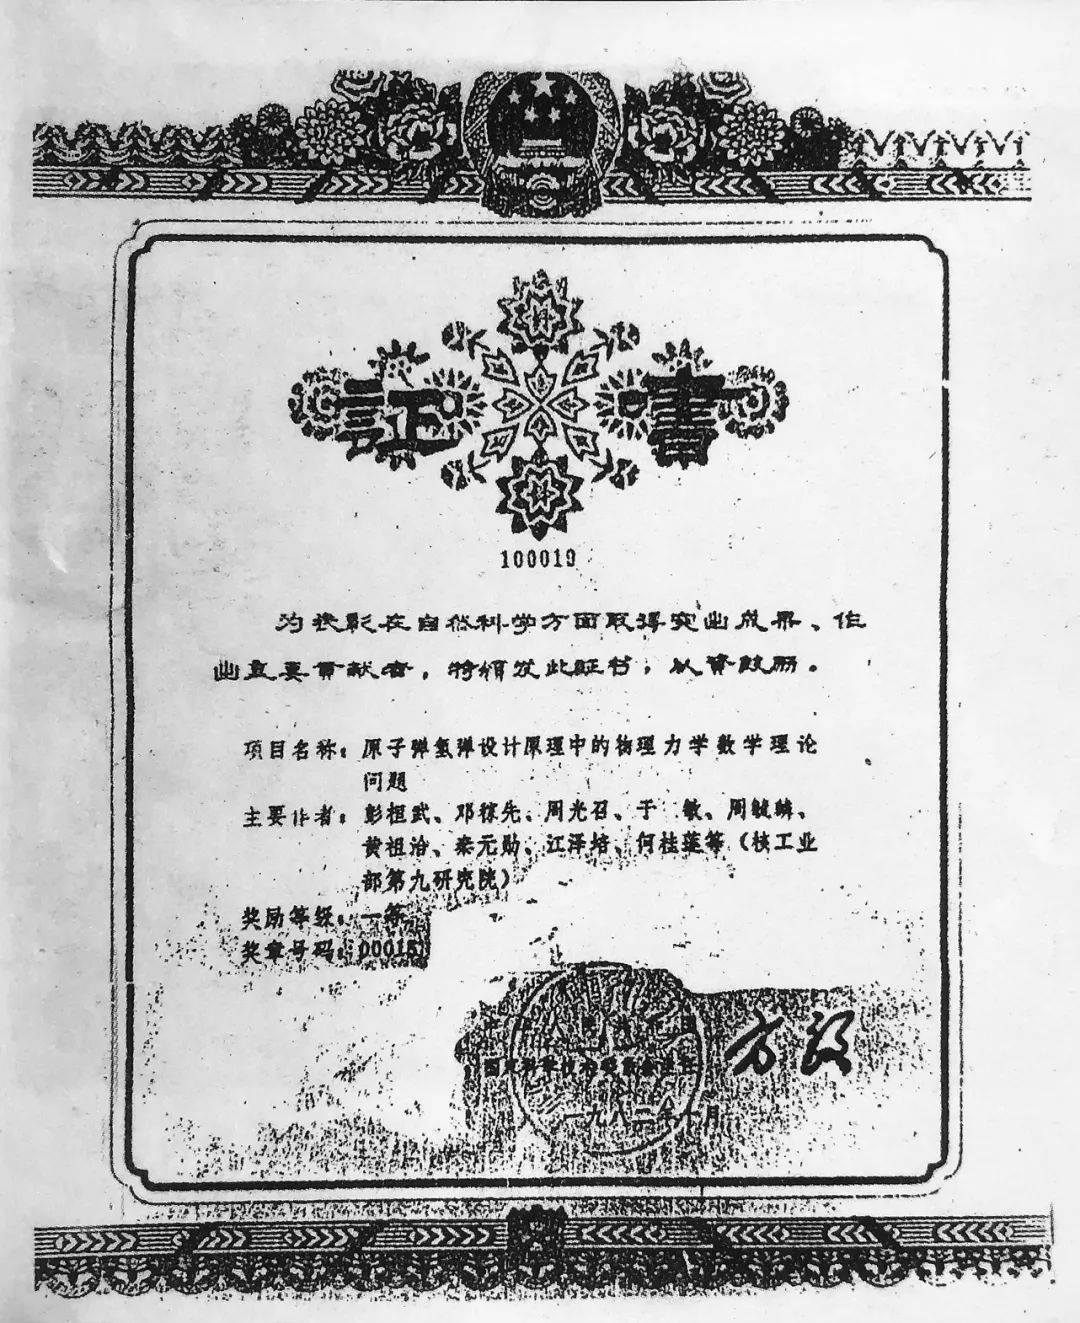 証書
100019
为表彰在自然科学方面取得突出成果、作
出重要贡献者，特颁发此证书，以资鼓励。
项目名称：原子弹氢弹设计原理中的物理力学数学理论
问题
主要作者：彭桓武、邓稼先、周光召、于 敏、周毓麟、
黄祖洽、秦元勋、江泽培、何桂莲等（核工业
部第九研究院）
奖励等级：一等
奖章号码：00015
国家科学技术委员会主任
方毅
一九八二年十月